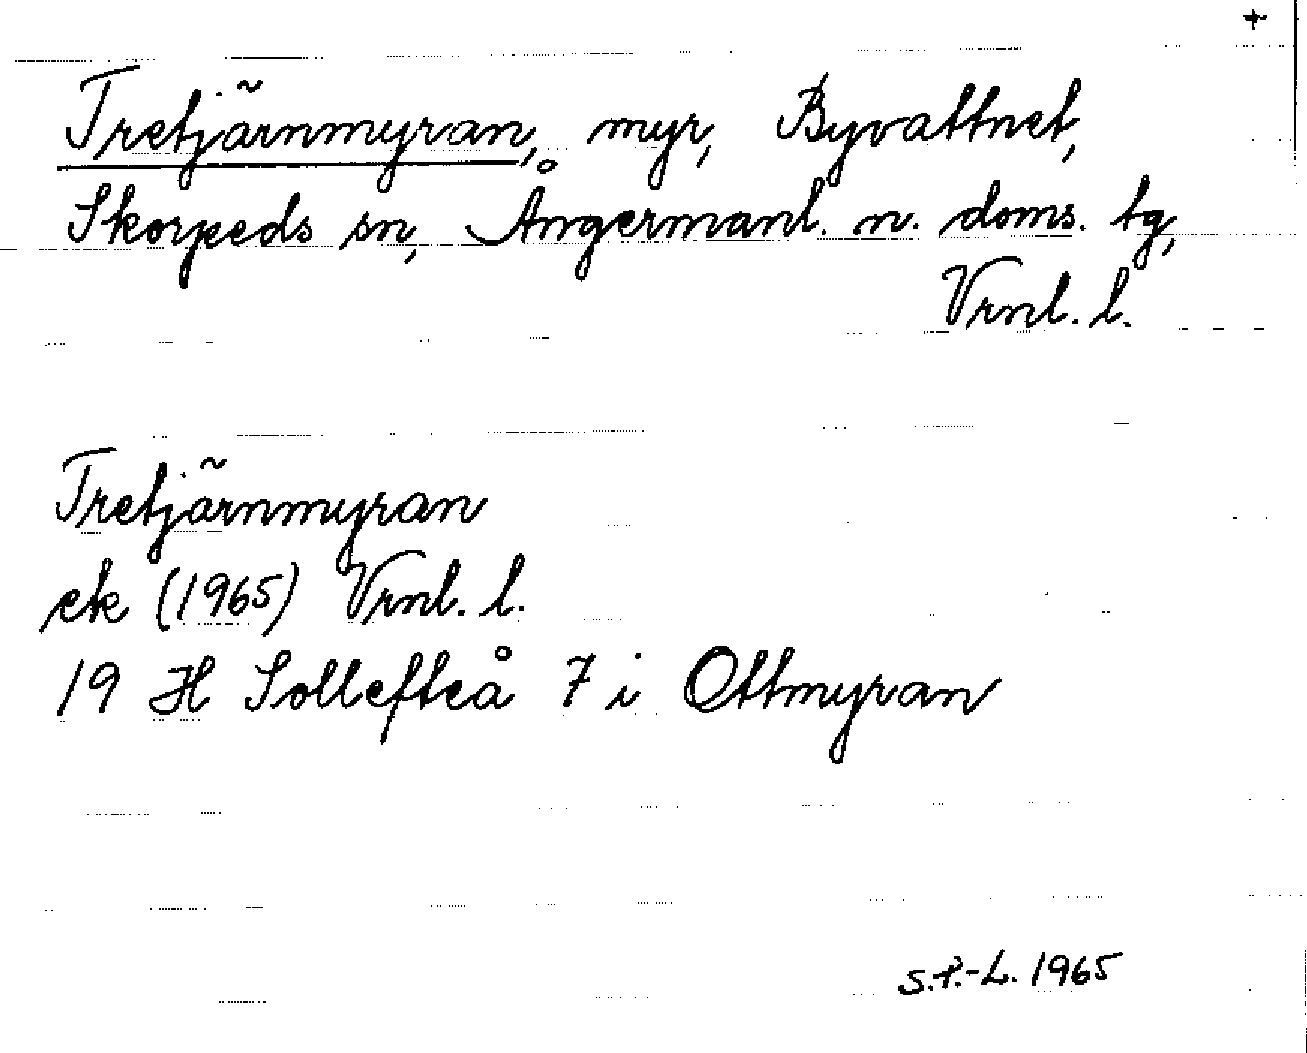 +
Tretjärnmyran, myr, Byvattnet,
Skorpeds sn, Ångermanl. n. doms. tg,
Vrnl. l.
Tretjärnmyran
ek (1965) Vrnl. l.
19 H Sollefteå 7 i Ottmyran
S.P.-L. 1965